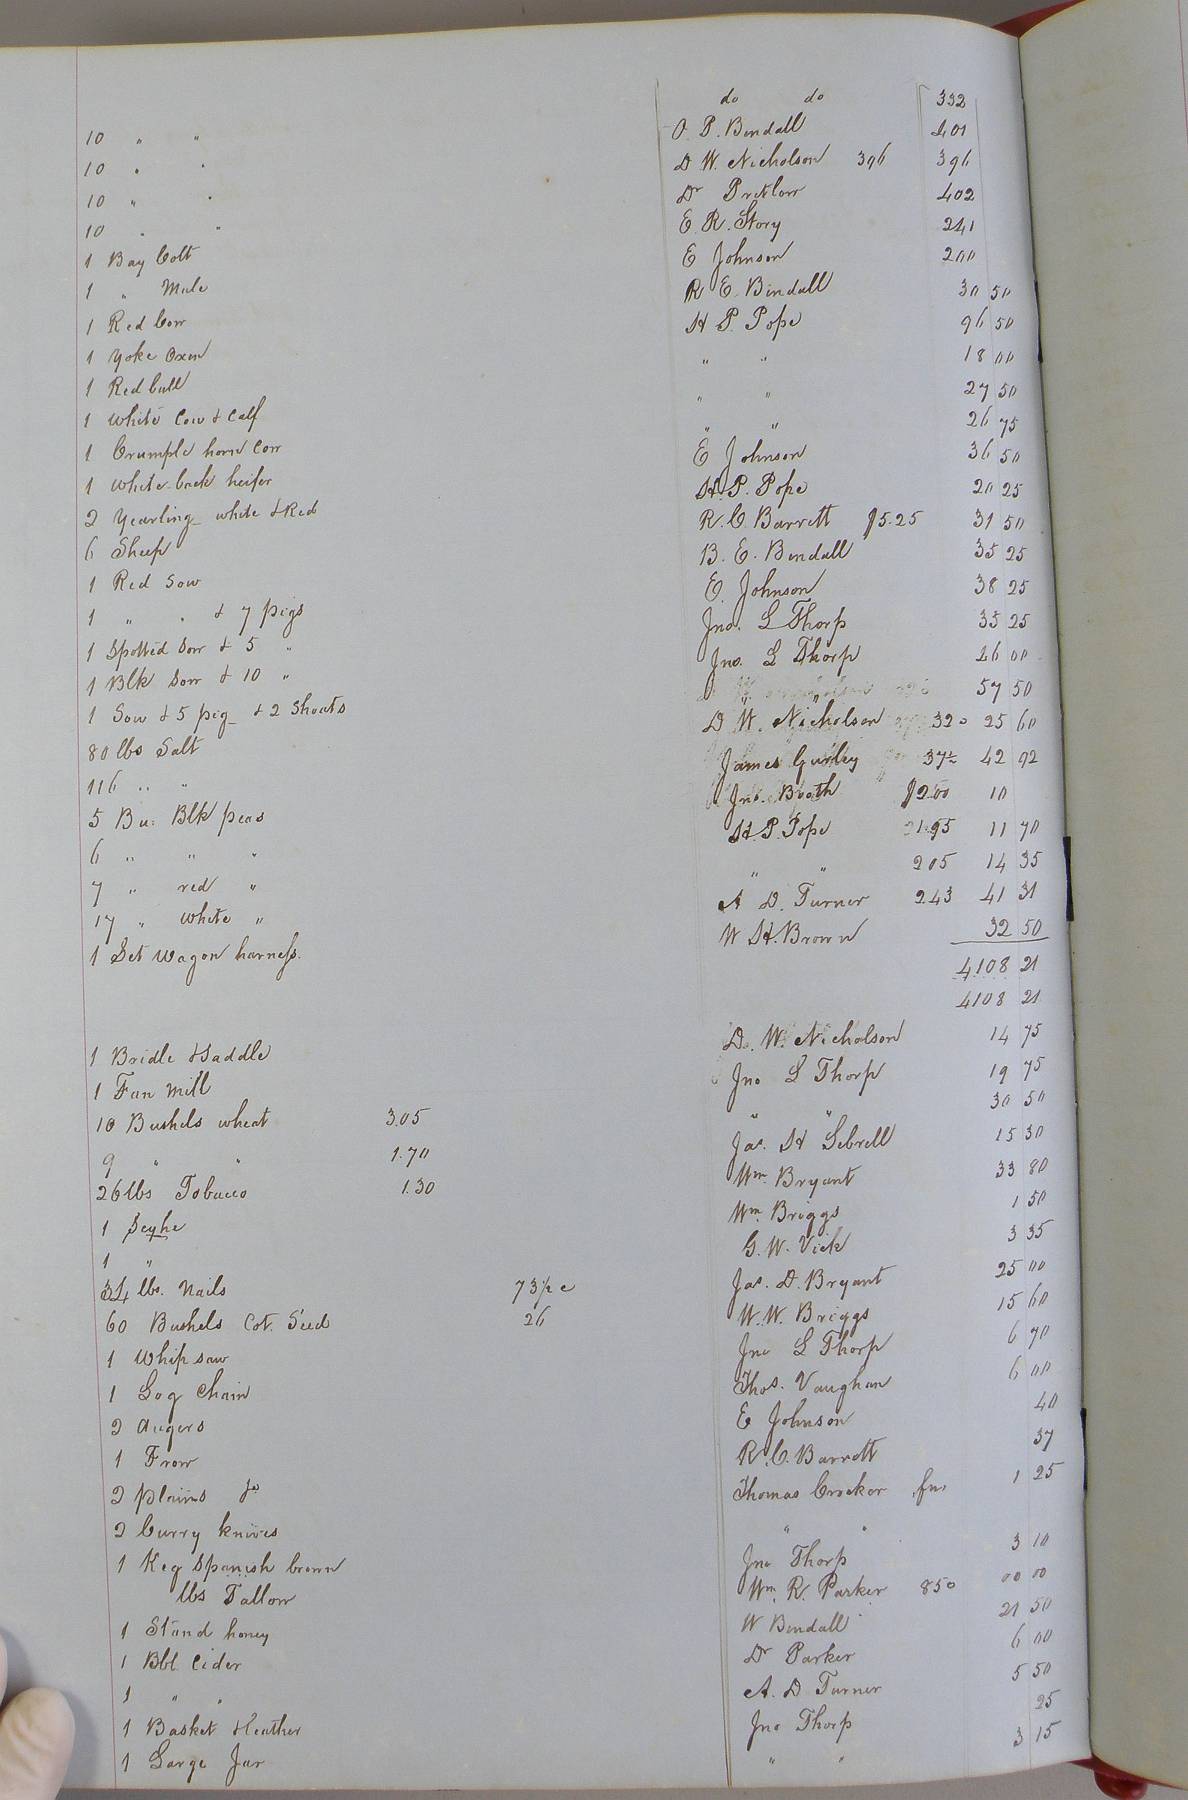 do do 332
10 " " O. P. Bendall 401
10 " " D W. Nicholson 396 396
10 " " Dr Pretlow 402
10 " " E. R. Story 241
1 Bay Colt E Johnson 200
1 " Mule R E. Bendall 30 50
1 Red Cow H P. Pope 96 50
1 Yoke Oxen " " 18 00
1 Red bull " " 27 50
1 White Cow & Calf " " 26 75
1 Crumple horn Cow E Johnson 36 50
1 White back heifer H. P. Pope 20 25
2 Yearling white & Red R. C. Barrett $5.25 31 50
6 Sheep B. E. Bendall 35 25
1 Red Sow E. Johnson 38 25
1 " " & 7 pigs Jno. L Thorp 35 25
1 Spotted Sow & 5 " Jno. L Thorp 26 00
1 Blk Sow & 10 " " " 57 50
1 Sow & 5 pig & 2 Shoats D W. Nicholson 32 25 60
80 lbs Salt James Gurley 37½ 42 92
116 " " Jno. Booth $2.00 10
5 Bu. Blk peas H. P. Pope 1.95 11 70
6 " " " " " 205 14 35
7 " red " A D. Turner 243 41 31
17 " white " W H. Brown 32 50
1 Set wagon harness. 4108 21
4108 21
1 Bridle & Saddle D. W. Nicholson 14 75
1 Fan mill Jno L Thorp 19 75
10 Bushels wheat 3.05 " " 30 50
9 " " 1.70 Jas. H Sebrell 15 30
26 lbs Tobacco 1.30 Wm. Bryant 33 80
1 Scythe Wm. Briggs 1 50
1 " G. W. Vick 3 35
34 lbs. Nails 73/pc Jas. D. Bryant 25 00
60 Bushels Cot. Seed 26 W. W. Briggs 15 60
1 Whip saw Jno L Thorp 6 70
1 Log Chain Thos. Vaughan 6 00
2 Augers E Johnson 40
1 Frow R. C. Barrett 37
2 plains Thomas Crocker 1 25
2 Curry knives " "
1 Keg Spanish brown Jno Thorp 3 10
lbs Tallow Wm. R. Parker 850 00 00
1 Stand honey W Bendall 21 50
1 Bbl Cider Dr Parker 6 00
1 " " A. D Turner 5 50
1 Basket & leather Jno Thorp 25
1 Large Jar " " 3 15